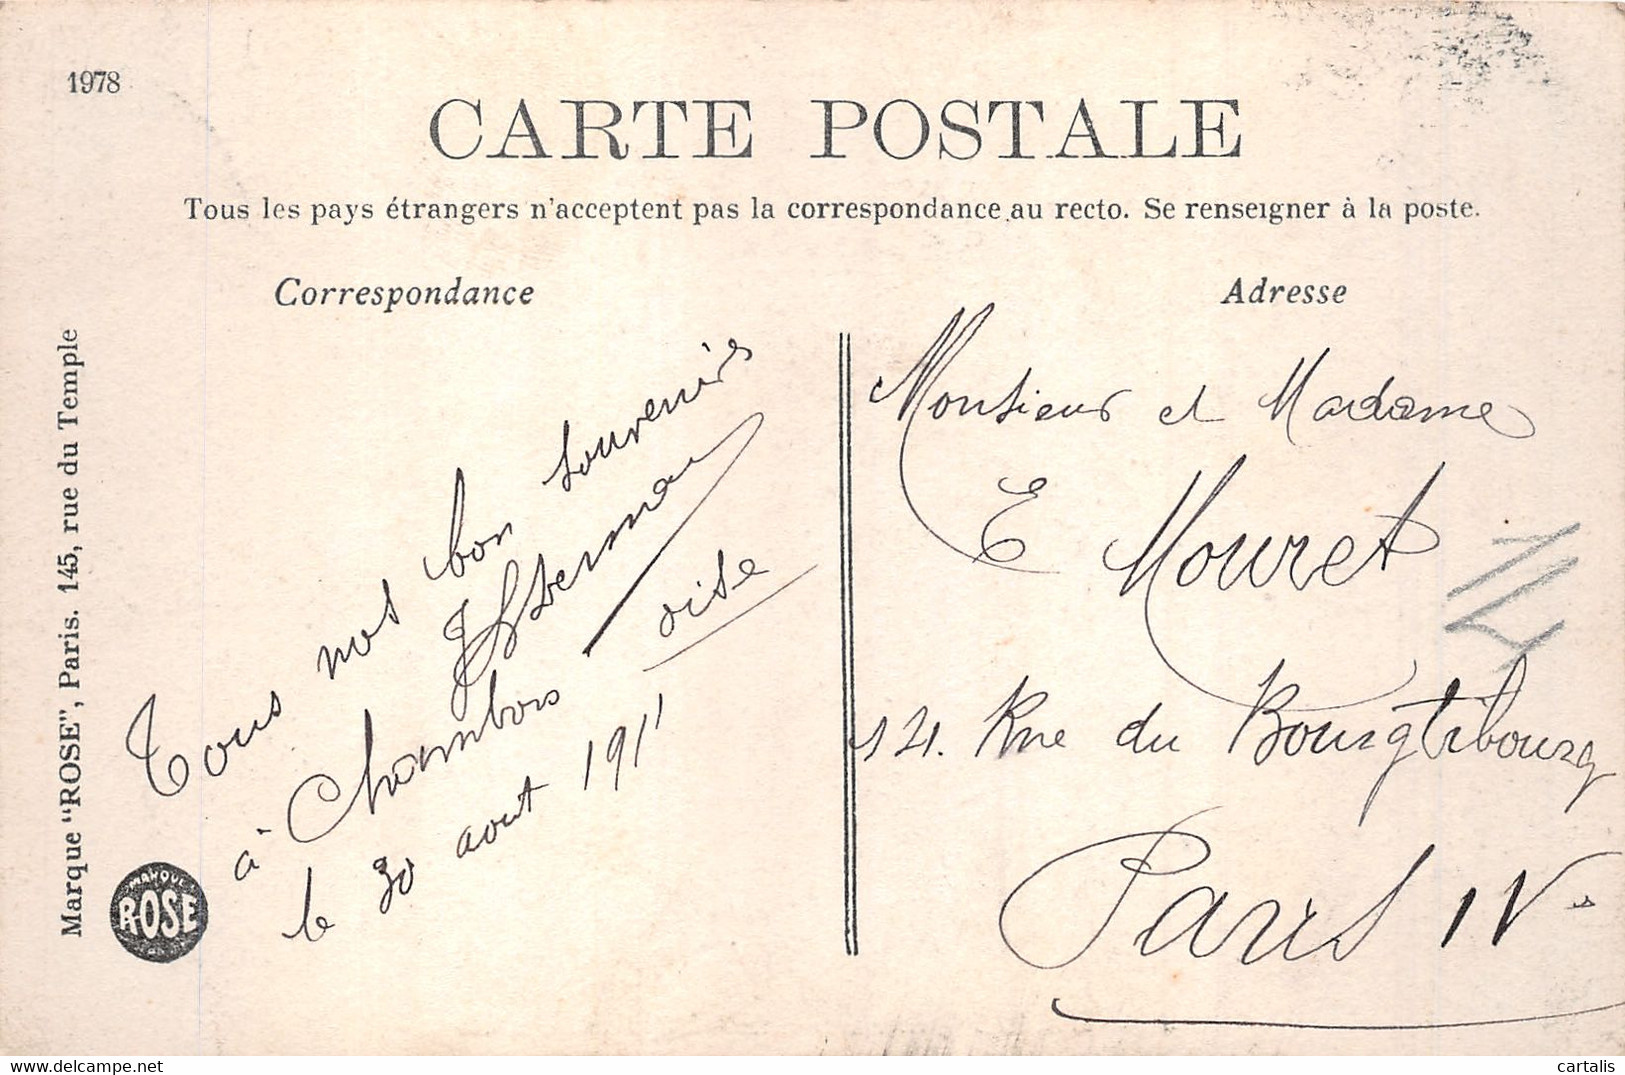 1978
CARTE POSTALE
Tous les pays étrangers n'acceptent pas la correspondance au recto. Se renseigner à la poste.
Correspondance
Adresse
Marque "ROSE", Paris. 145, rue du Temple
MARQUE
ROSE
Tous nos bon souvenirs
à Chambors oise
le 30 aout 1911
Monsieur et Madame
E Mouret
14
121. Rue du Bourgtibourg
Paris IVe
cartalis